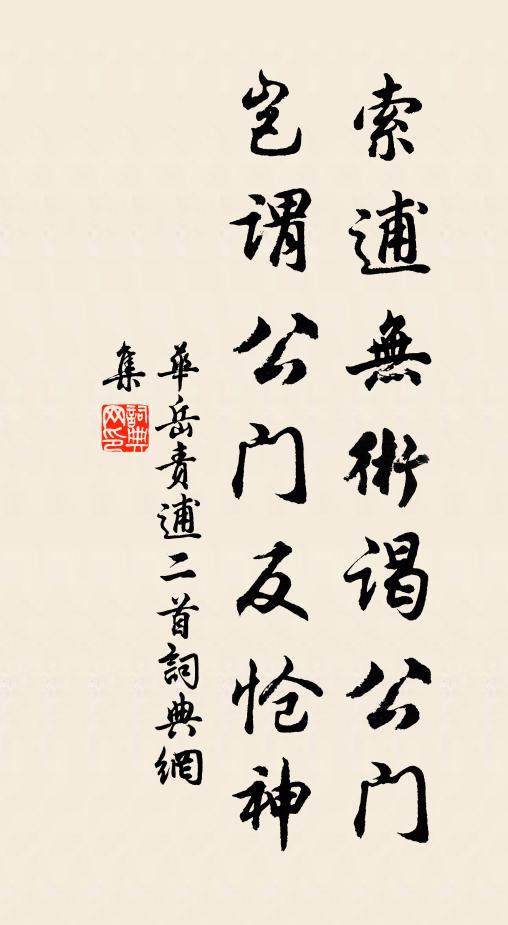 索逋無術謁公門
岂谓公门反怆神
華岳責逋二首詞典網
集
詞典
网印